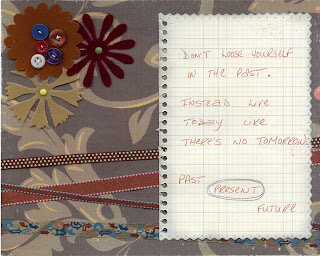 DON'T LOOSE YOURSELF
IN THE PAST.
INSTEAD LIVE
TODAY LIKE
THERE'S NO TOMORROW.
PAST
PRESENT
FUTURE